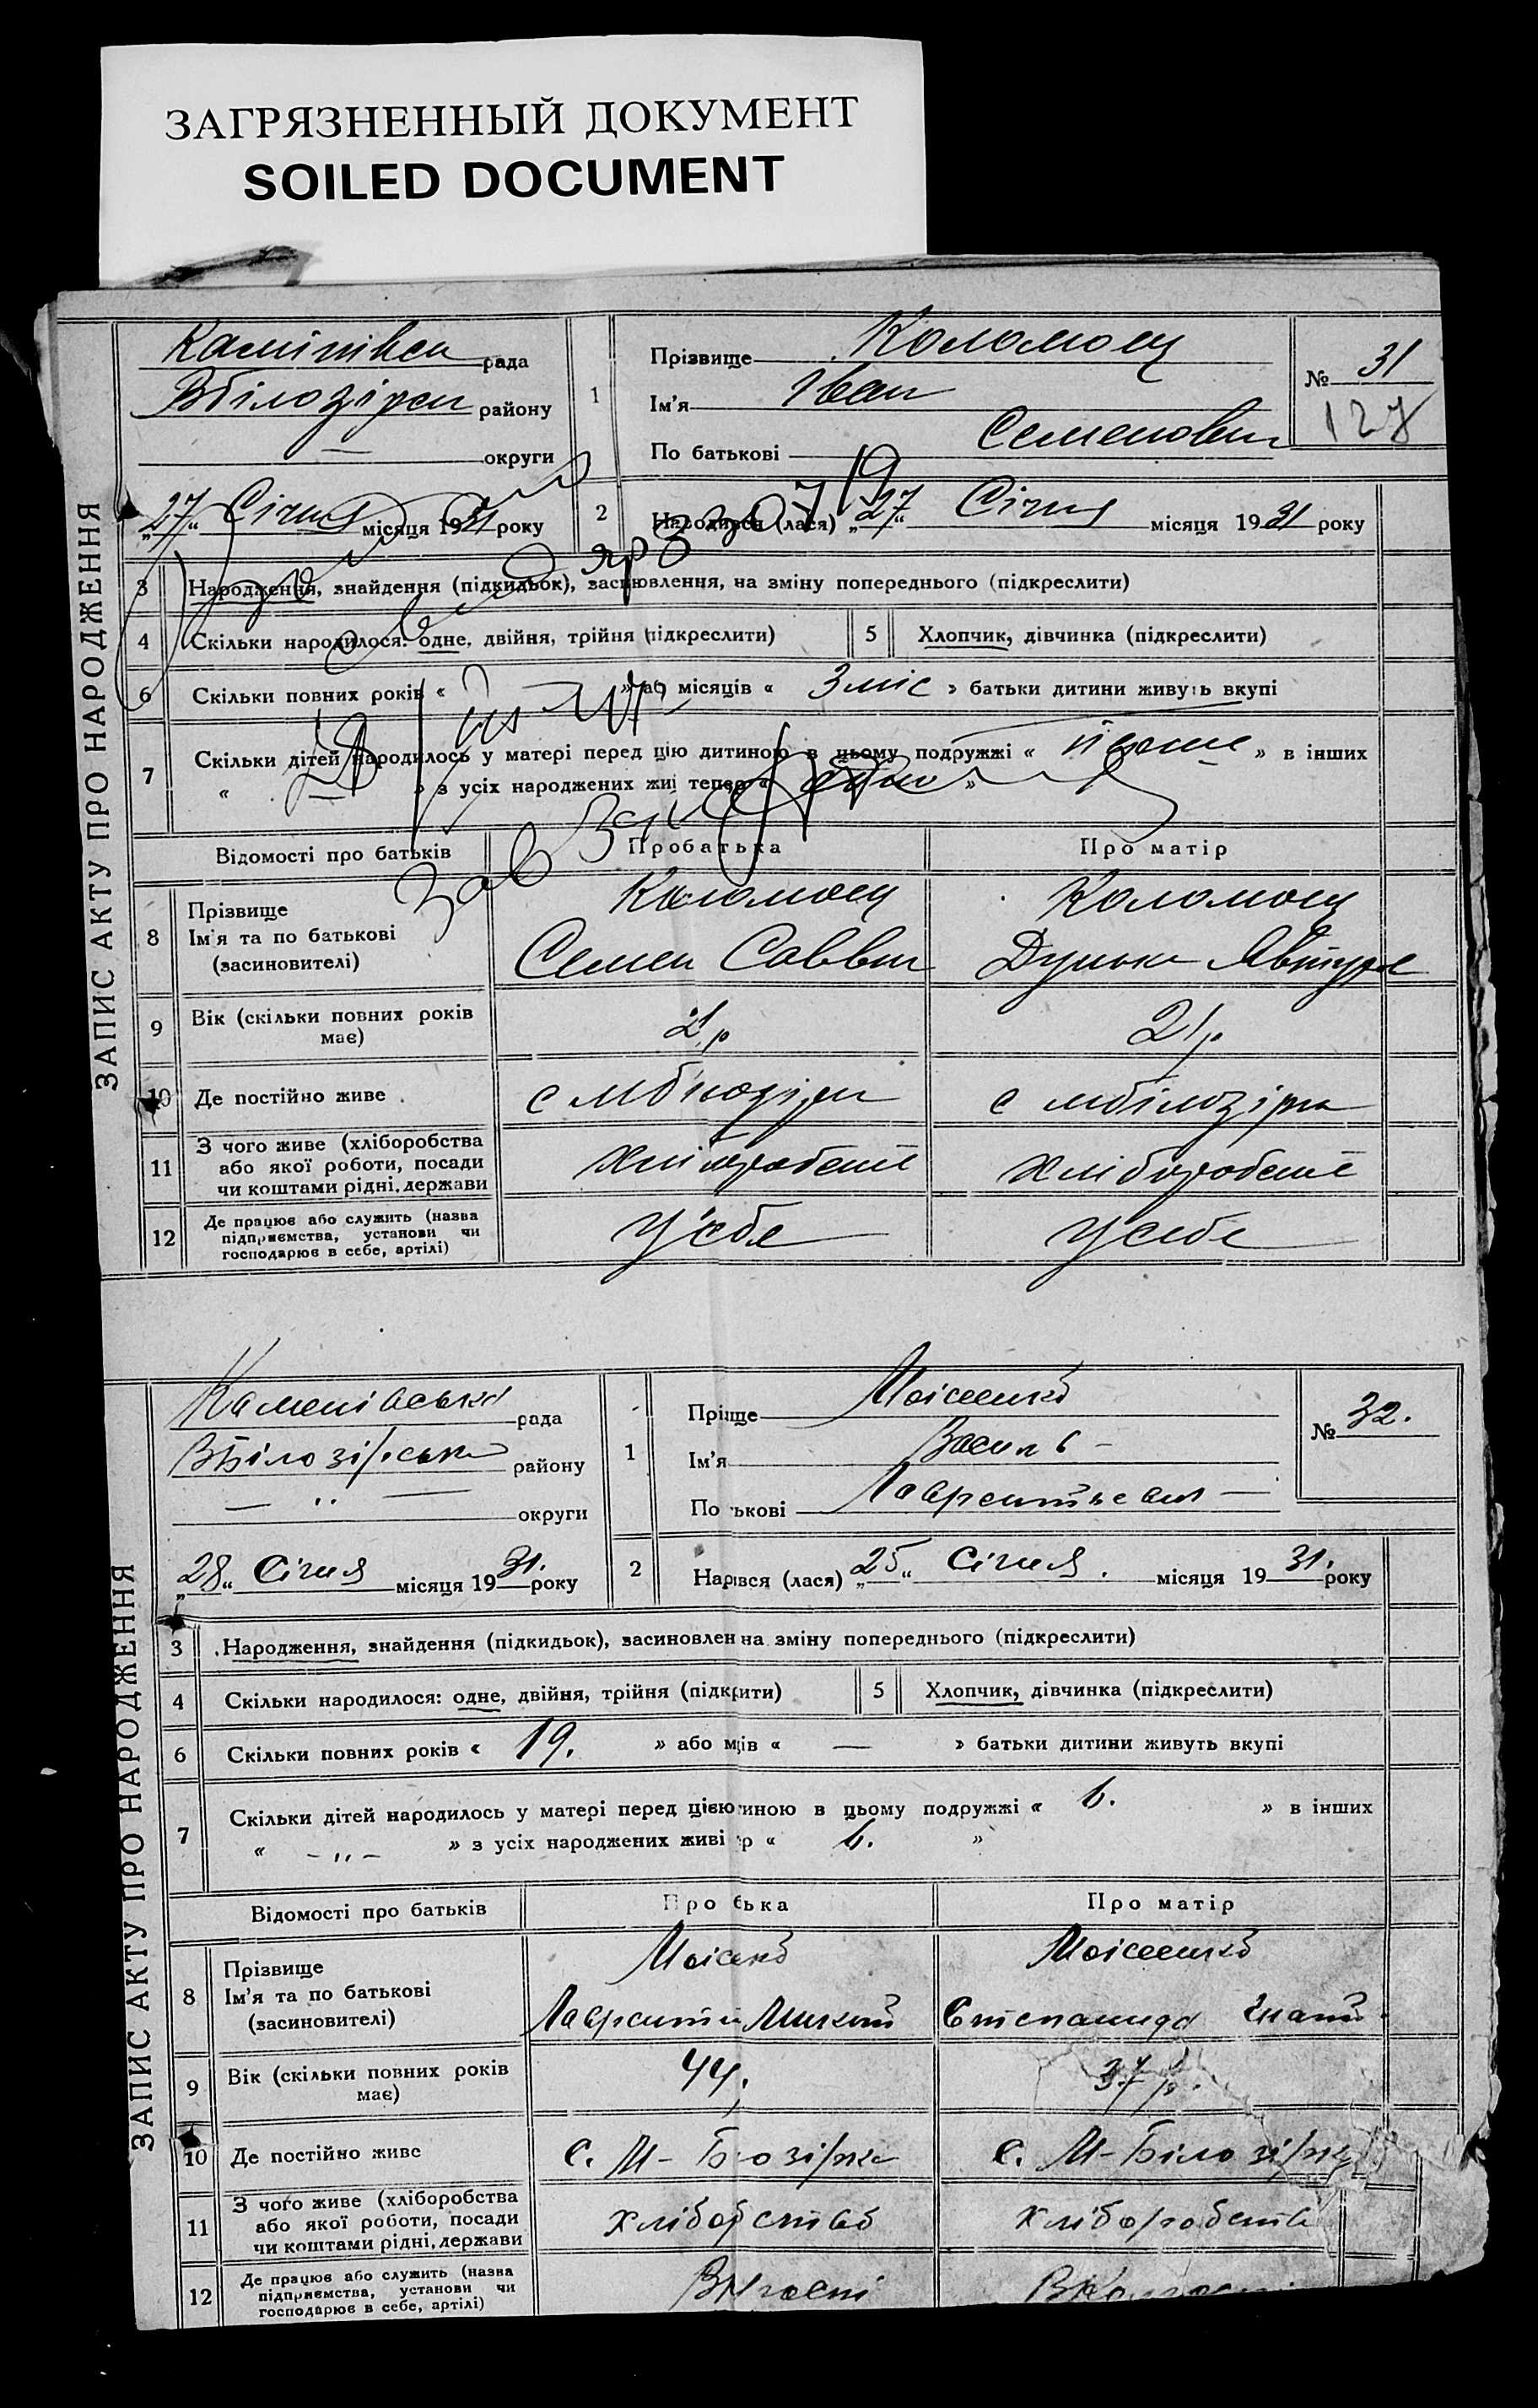 ЗАГРЯЗНЕННЫЙ ДОКУМЕНТ
SOILED DOCUMENT
ЗАПИС АКТУ ПРО НАРОДЖЕННЯ
рада
Вбілозірск району
округи
1
Прізвище Коломоец
Ім'я Іван
По батькові Семенович
№ 31
127
„27“ Січня місяця 1931 року
2
Народився (лася) „27“ Січня місяця 1931 року
3 Народження, знайдення (підкидьок), засиновлення, на зміну попереднього (підкреслити)
4 Скільки народилося: одне, двійня, трійня (підкреслити) 5 Хлопчик, дівчинка (підкреслити)
6 Скільки повних років « — » або місяців « 3 міс » батьки дитини живуть вкупі
7 Скільки дітей народилось у матері перед цію дитиною в цьому подружжі « » в інших
« — » з усіх народжених живі тепер « »
Відомості про батьків Про батька Про матір
8 Прізвище
Ім'я та по батькові
(засиновителі)
Коломоец Коломоец
Семен Саввич
9 Вік (скільки повних років
має)
21р
10 Де постійно живе
с мбілозірка
11 З чого живе (хліборобства
або якої роботи, посади
чи коштами рідні, держави
12 Де працює або служить (назва
підприємства, установи чи
господарює в себе, артілі)
У себе У себе
ЗАПИС АКТУ ПРО НАРОДЖЕННЯ
Каменівська рада
ВБілозірська району
— „ — округи
1
Пріще Моісеенко
Ім'я Василь –
По ькові Лаврентьевич —
№ 32.
„28“ Січня місяця 1931. року
2
Нарвся (лася) „25“ Січня. місяця 1931. року
3 Народження, знайдення (підкидьок), засиновлен на зміну попереднього (підкреслити)
4 Скільки народилося: одне, двійня, трійня (підкрити) 5 Хлопчик, дівчинка (підкреслити)
6 Скільки повних років « 19. » або мців « — » батьки дитини живуть вкупі
7 Скільки дітей народилось у матері перед цією иною в цьому подружжі « 6. » в інших
« – „ – » з усіх народжених живі р « 6. »
Відомості про батьків Про ька Про матір
8 Прізвище
Ім'я та по батькові
(засиновителі)
Моісенко Моісеенко
Лаврентий
9 Вік (скільки повних років
має)
44, 37 р.
10 Де постійно живе
с. М-Бозірка с. М-Білозірка
11 З чого живе (хліборобства
або якої роботи, посади
чи коштами рідні, держави
хліборобства
12 Де працює або служить (назва
підприємства, установи чи
господарює в себе, артілі)